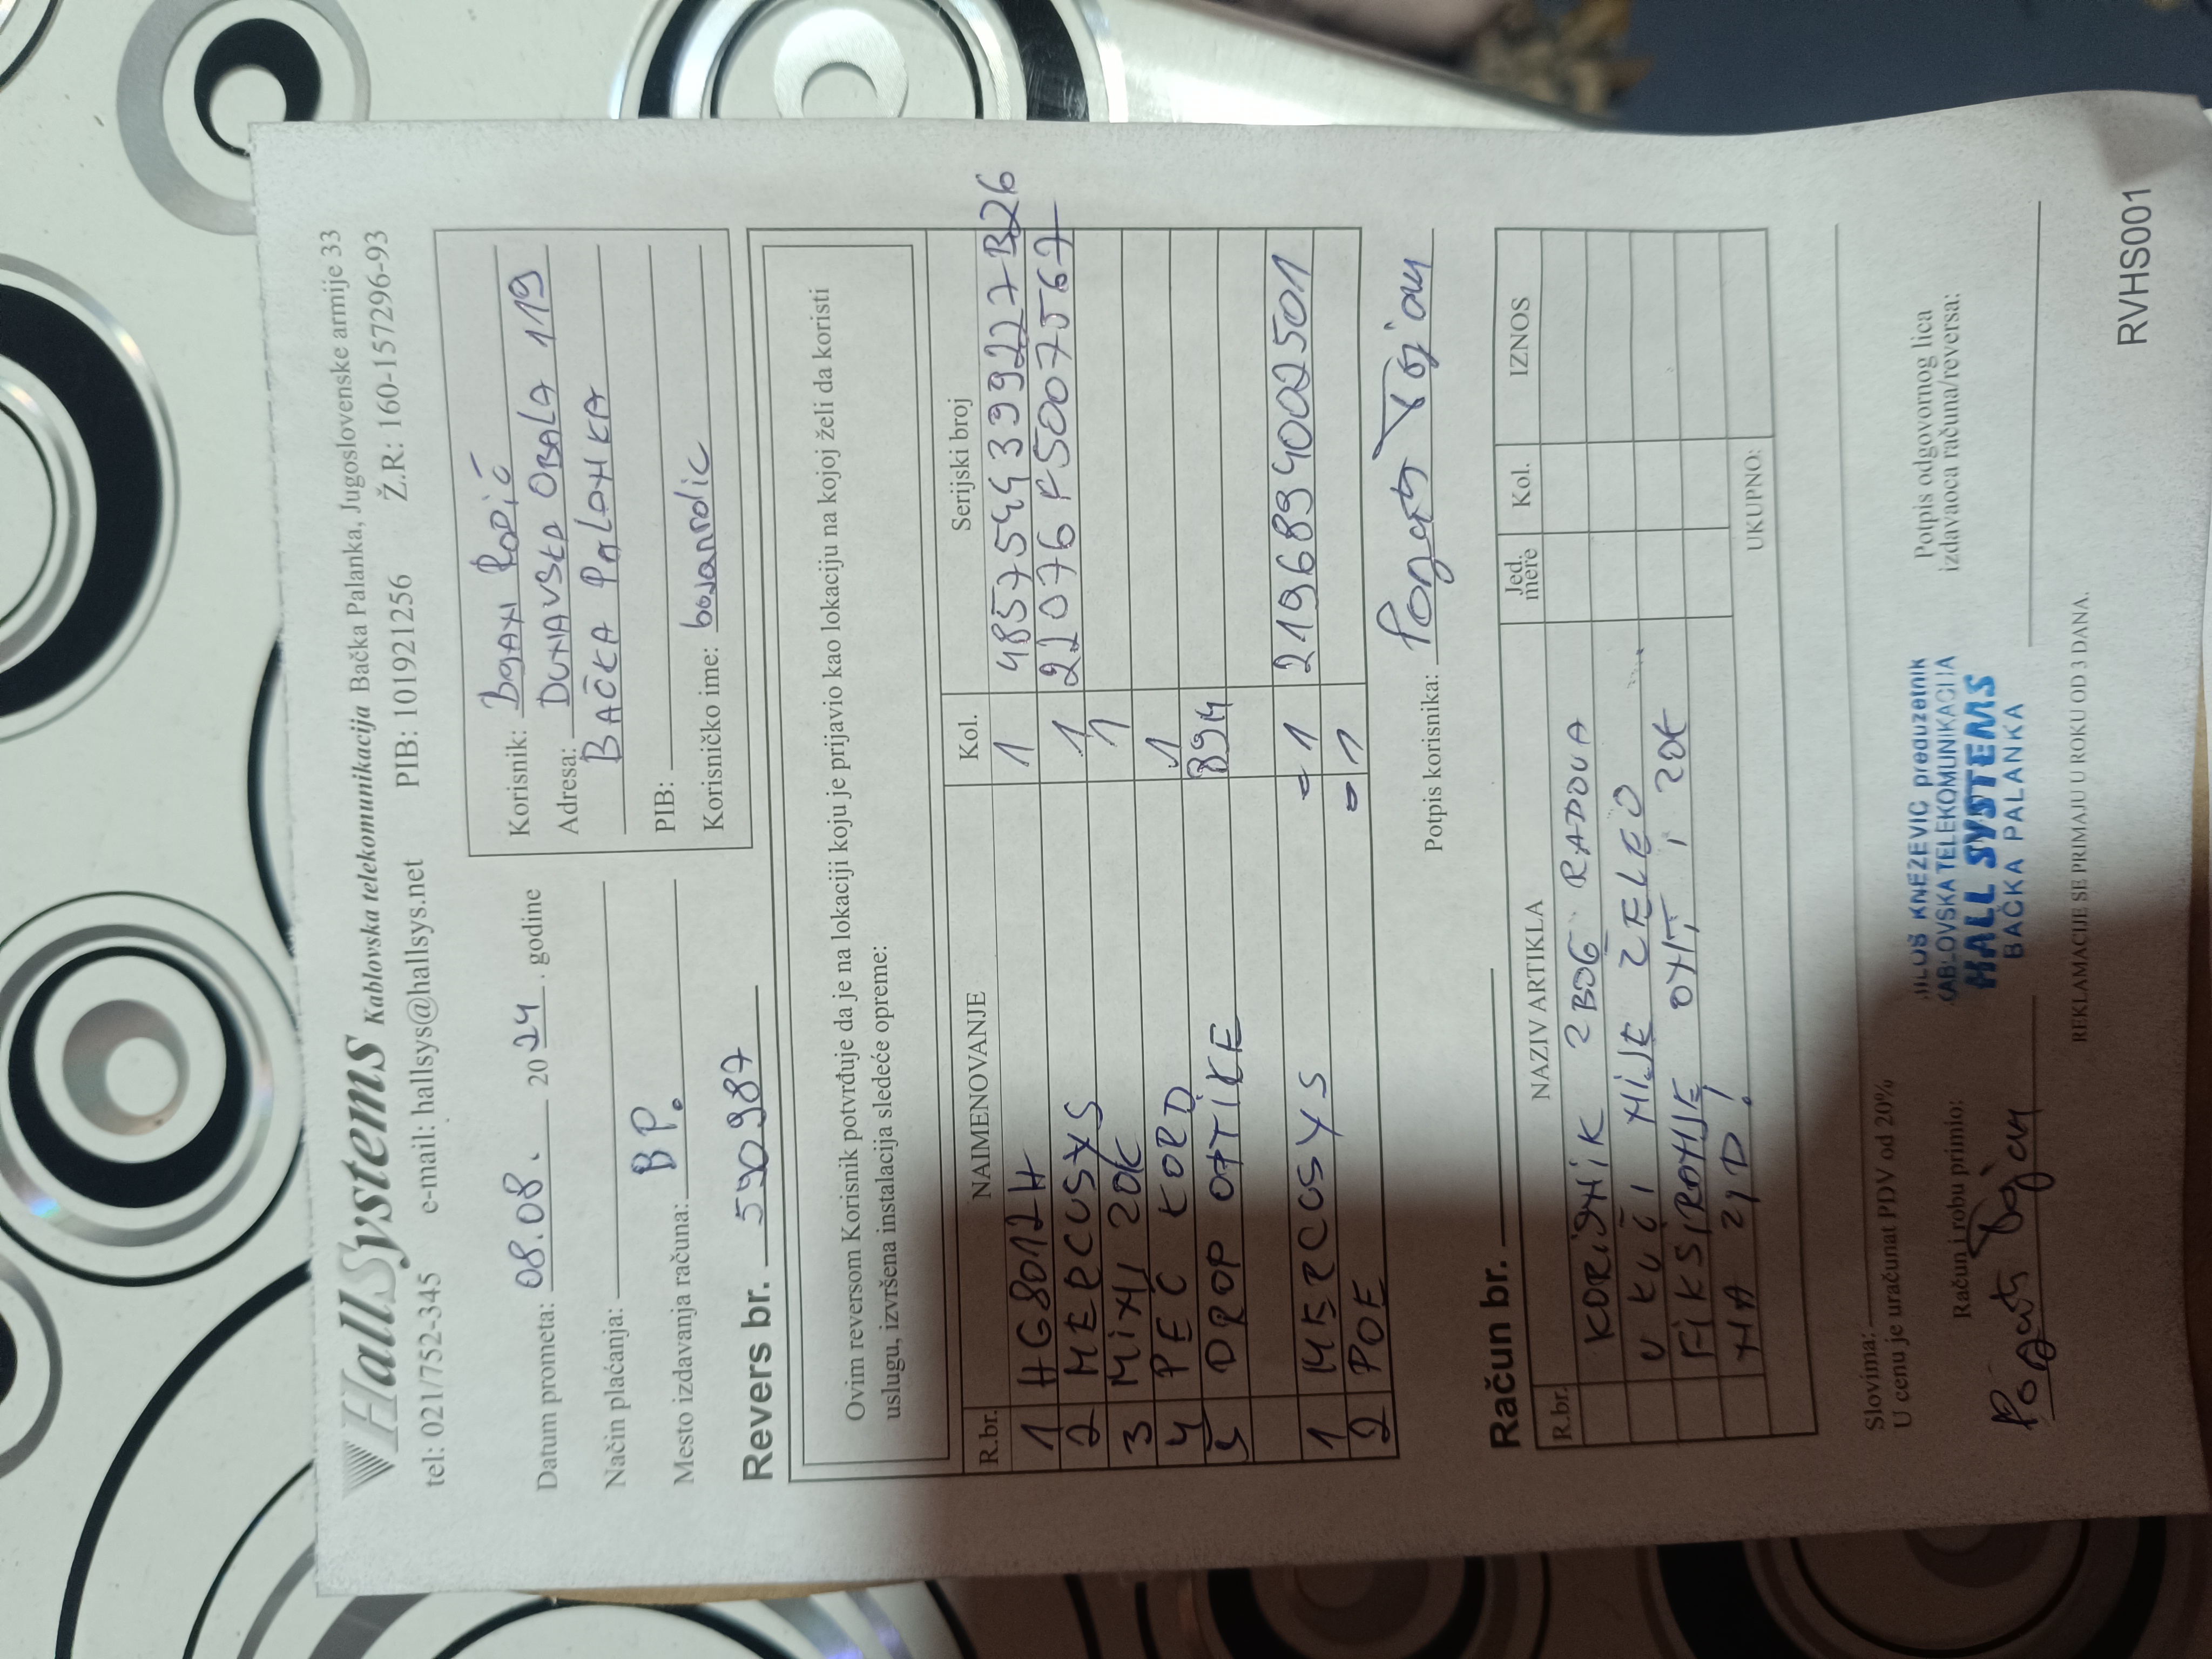 HallSystems Kablovska telekomunikacija Bačka Palanka, Jugoslovenske armije 33
tel: 021/752-345 e-mail: hallsys@hallsys.net PIB: 101921256 Ž.R.: 160-157296-93
Datum prometa: 08.08. 2024. godine
Način plaćanja:
Mesto izdavanja računa: BP.
Korisnik: BOJAN RODIĆ
Adresa: DUNAVSKA OBALA 119
BAČKA PALANKA
PIB:
Korisničko ime: bojanrodic
Revers br. 540987
Ovim reversom Korisnik potvrđuje da je na lokaciji koju je prijavio kao lokaciju na kojoj želi da koristi
uslugu, izvršena instalacija sledeće opreme:
R.br. NAIMENOVANJE Kol. Serijski broj
1 HG8012H 1 485754439227B26
2 MERCUSYS 1 22076F5007567
3 MINI ZOK 1
4 PEČ KORD 1
5 DROP OPTIKE 89M
1 MERCUSYS -1 2196894002501
2 POE -1
Potpis korisnika:
Račun br.
R.br. NAZIV ARTIKLA Jed. mere Kol. IZNOS
KORISNIK ZBOG RADOVA
U KUĆI NIJE ŽELEO
FIKSIRANJE ONT, I ZOK
NA ZID!
UKUPNO:
Slovima:
U cenu je uračunat PDV od 20%
Račun i robu primio:
MILUŠ KNEŽEVIĆ preduzetnik
KABLOVSKA TELEKOMUNIKACIJA
HALL SYSTEMS
BAČKA PALANKA
Potpis odgovornog lica
izdavaoca računa/reversa:
REKLAMACIJE SE PRIMAJU U ROKU OD 3 DANA.
RVHS001